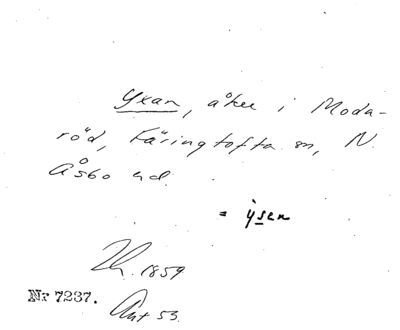 Yxan, åker i Moda-
röd, Färingtofta sn, N.
Åsbo hd.
= ỳsen
Lh. 1859
Nr 7237.
Ant 53.